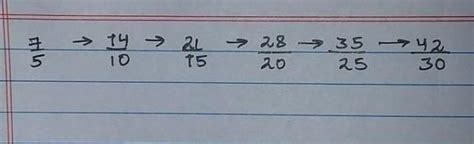 7/5 → 14/10 → 21/15 → 28/20 → 35/25 → 42/30